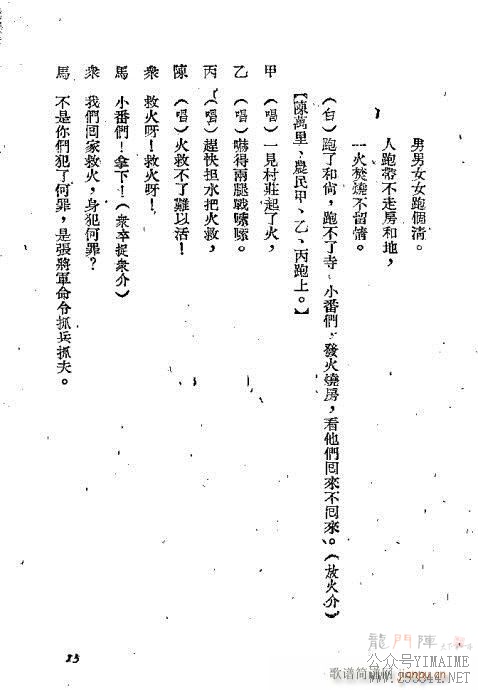 男男女女跑個淸。
人跑帶不走房和地，
一火焚燒不留情。
（白）跑了和尙，跑不了寺，小番們，發火燒房，看他們囘來不囘來。（放火介）
【陳萬里、農民甲、乙、丙跑上。】
甲　（唱）一見村莊起了火，
乙　（唱）嚇得兩腿戰嗦嗦。
丙　（唱）趕快担水把火救，
陳　（唱）火救不了難以活！
衆　救火呀！救火呀！
馬　小番們！拿下！（衆卒捉衆介）
衆　我們囘家救火，身犯何罪？
馬　不是你們犯了何罪，是張將軍命令抓兵抓夫。
龍門陣
公众号YIMAIME
歌谱简谱网